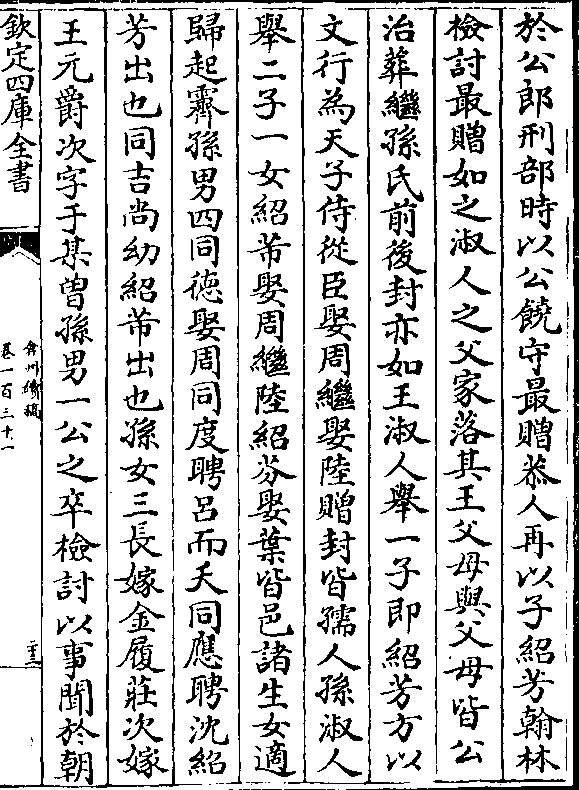 於公郎刑部時以公饒守最贈恭人再以子紹芳翰林
檢討最贈如之淑人之父家落其王父母與父母皆公
治葬繼孫氏前後封亦如王淑人舉一子即紹芳方以
文行為天子侍從臣娶周繼娶陸贈封皆孺人孫淑人
舉二子一女紹芾娶周繼陸紹芬娶葉皆邑諸生女適
歸起霽孫男四同德娶周同度聘呂而夭同應聘沈紹
芳出也同吉尚幼紹芾出也孫女三長嫁金履莊次嫁
王元爵次字于某曾孫男一公之卒檢討以事聞於朝
欽定四庫全書
弇州續稿
卷一百三十一
二十三